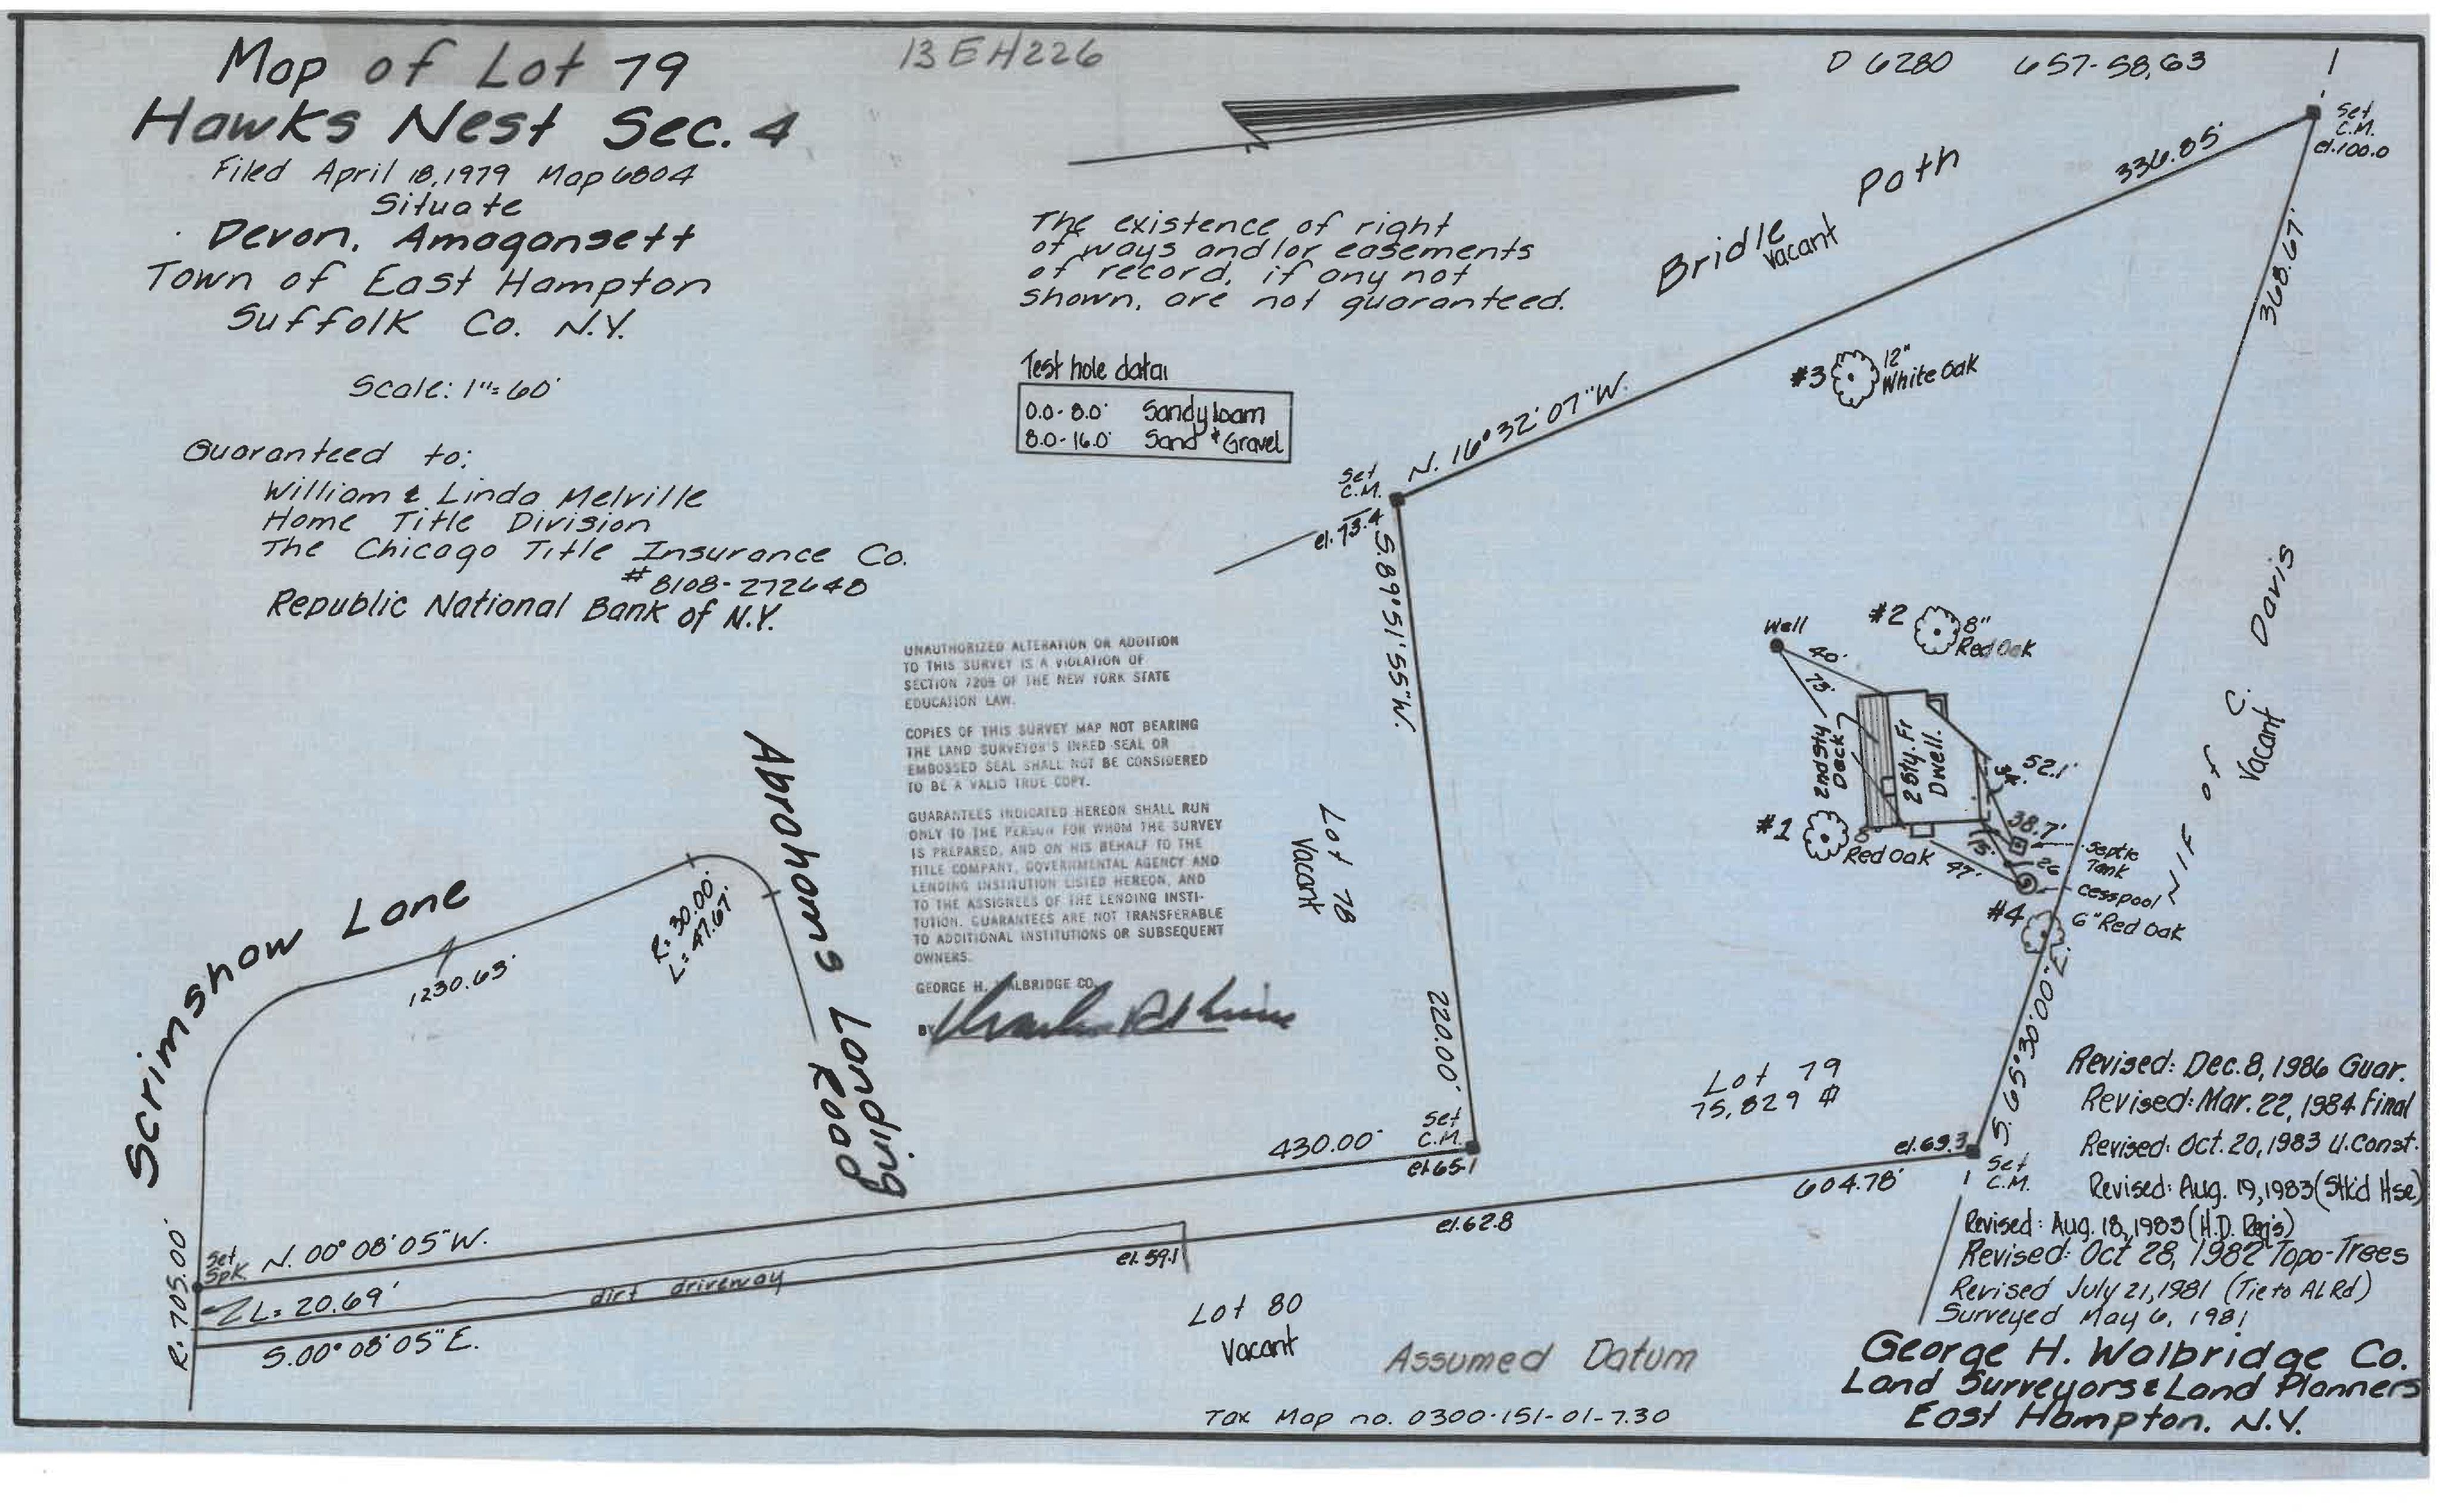 Map of Lot 79
Hawks Nest Sec. 4
Filed April 18, 1979 Map 6804
Situate
Devon, Amagansett
Town of East Hampton
Suffolk Co. N.Y.
Scale: 1"=60'
Guaranteed to:
William & Linda Melville
Home Title Division
The Chicago Title Insurance Co.
#8108-272648
Republic National Bank of N.Y.
13EH226
D 6280 657-58,63
The existence of right
of ways and/or easements
of record, if any not
shown, are not guaranteed.
Test hole data:
0.0-8.0' Sandy loam
8.0-16.0' Sand & Gravel
Bridle Path
Vacant
336.85'
Set
C.M.
el.100.0
368.67'
N. 16°32'07"W.
#3 12"
White Oak
Set
C.M.
el. 73.4
S.89°51'55"W.
220.00'
Well
40'
73'
#2 8"
Red Oak
2nd Sty
Deck
2 Sty. Fr
Dwell.
52.1'
38.7'
15'
26
47'
Septic
Tank
Cesspool
#1 8"
Red Oak
#4
6" Red Oak
N/F of C. Davis
Vacant
S.65°30'00"E.
UNAUTHORIZED ALTERATION OR ADDITION
TO THIS SURVEY IS A VIOLATION OF
SECTION 7209 OF THE NEW YORK STATE
EDUCATION LAW.
COPIES OF THIS SURVEY MAP NOT BEARING
THE LAND SURVEYOR'S INKED SEAL OR
EMBOSSED SEAL SHALL NOT BE CONSIDERED
TO BE A VALID TRUE COPY.
GUARANTEES INDICATED HEREON SHALL RUN
ONLY TO THE PERSON FOR WHOM THE SURVEY
IS PREPARED, AND ON HIS BEHALF TO THE
TITLE COMPANY, GOVERNMENTAL AGENCY AND
LENDING INSTITUTION LISTED HEREON, AND
TO THE ASSIGNEES OF THE LENDING INSTI-
TUTION. GUARANTEES ARE NOT TRANSFERABLE
TO ADDITIONAL INSTITUTIONS OR SUBSEQUENT
OWNERS.
GEORGE H. WALBRIDGE CO.
BY
Lot 78
Vacant
Scrimshaw Lane
1230.63'
R=30.00'
L=47.67'
Abraham's Landing
Road
Lot 79
75,829
430.00'
Set
C.M.
el.65.1
el.69.3
Set
C.M.
604.78'
el.62.8
el. 59.1
R=705.00'
Set
Spk.
N. 00°08'05"W.
L=20.69'
dirt driveway
S.00°08'05"E.
Lot 80
Vacant
Assumed Datum
Tax Map no. 0300-151-01-7.30
Revised: Dec.8,1986 Guar.
Revised: Mar.22,1984 Final
Revised: Oct.20,1983 U.Const.
Revised: Aug. 19,1983 (Stk'd Hse)
Revised: Aug. 18, 1983 (H.D. Req's)
Revised: Oct 28, 1982 Topo-Trees
Revised July 21,1981 (Tie to ALRd)
Surveyed May 6, 1981
George H. Walbridge Co.
Land Surveyors & Land Planners
East Hampton, N.Y.